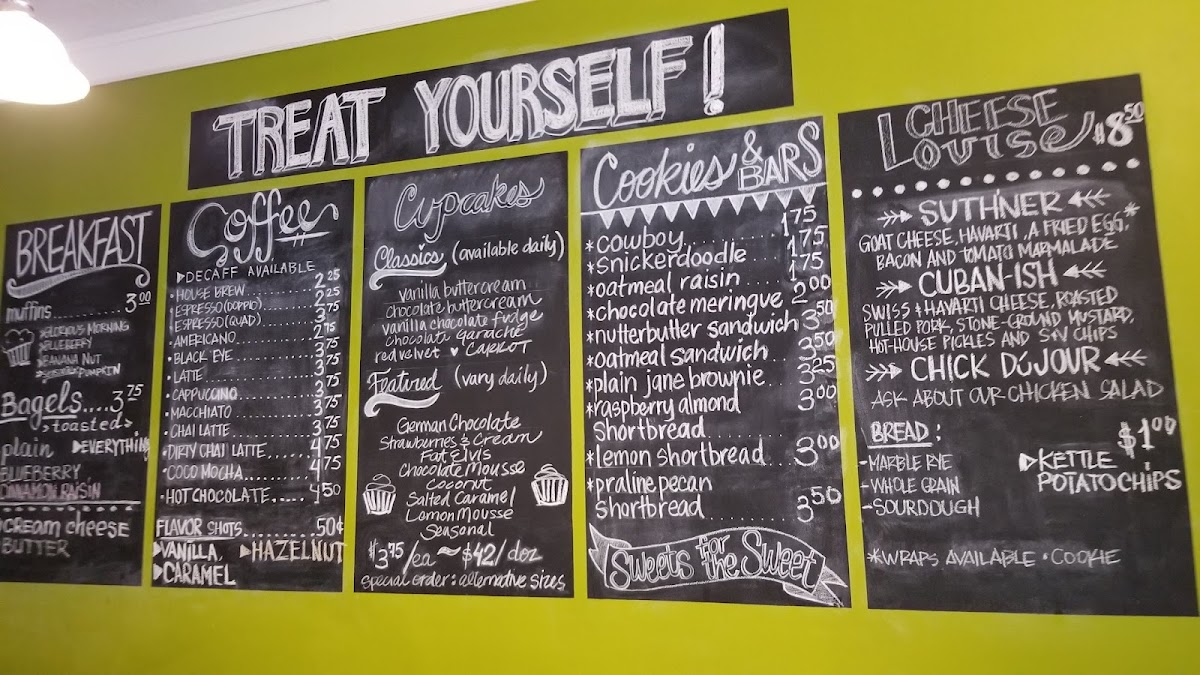 TREAT YOURSELF!
BREAKFAST
muffins........3.00
BLUEBERRY
BANANA NUT
PUMPKIN
Bagels....3.75
toasted
plain ▶EVERYTHING
BLUEBERRY
CINNAMON RAISIN
CREAM CHEESE
BUTTER
Coffee
▶DECAFF AVAILABLE
•HOUSE BREW 2.25
•ESPRESSO (DOPPIO) 2.25
•ESPRESSO (QUAD) 3.25
•AMERICANO 2.75
•BLACK EYE 3.75
•LATTE 3.75
•CAPPUCCINO 3.75
•MACCHIATO 3.75
•CHAI LATTE 3.75
•DIRTY CHAI LATTE 4.75
•COCO MOCHA 4.75
•HOT CHOCOLATE 4.50
FLAVOR SHOTS 50¢
▶VANILLA ▶HAZELNUT
▶CARAMEL
Cupcakes
Classics (available daily)
vanilla buttercream
chocolate buttercream
vanilla chocolate fudge
chocolate garache
red velvet ♥ CARROT
Featured (vary daily)
German Chocolate
Strawberries & Cream
Fat Elvis
Chocolate Mousse
Coconut
Salted Caramel
Lemon Mousse
Seasonal
$3.75/ea ~ $42/doz
special order: alternative sizes
Cookies & BARS
*cowboy 1.75
*snickerdoodle 1.75
*oatmeal raisin 1.75
*chocolate meringue 2.00
*nutterbutter sandwich 3.50
*oatmeal sandwich 3.50
*plain jane brownie 3.25
*raspberry almond 3.00
shortbread
*lemon shortbread 3.00
*praline pecan
shortbread 3.50
Sweets for the Sweet
CHEESE Louise $8.50
SUTH'NER
GOAT CHEESE, HAVARTI, A FRIED EGG,*
BACON AND TOMATO MARMALADE
CUBAN-ISH
SWISS & HAVARTI CHEESE, ROASTED
PULLED PORK, STONE-GROUND MUSTARD,
HOT-HOUSE PICKLES AND S+V CHIPS
CHICK DúJOUR
ASK ABOUT OUR CHICKEN SALAD
BREAD:
-MARBLE RYE
-WHOLE GRAIN
-SOURDOUGH
$1.00
▶KETTLE
POTATO CHIPS
*WRAPS AVAILABLE • COOKIE